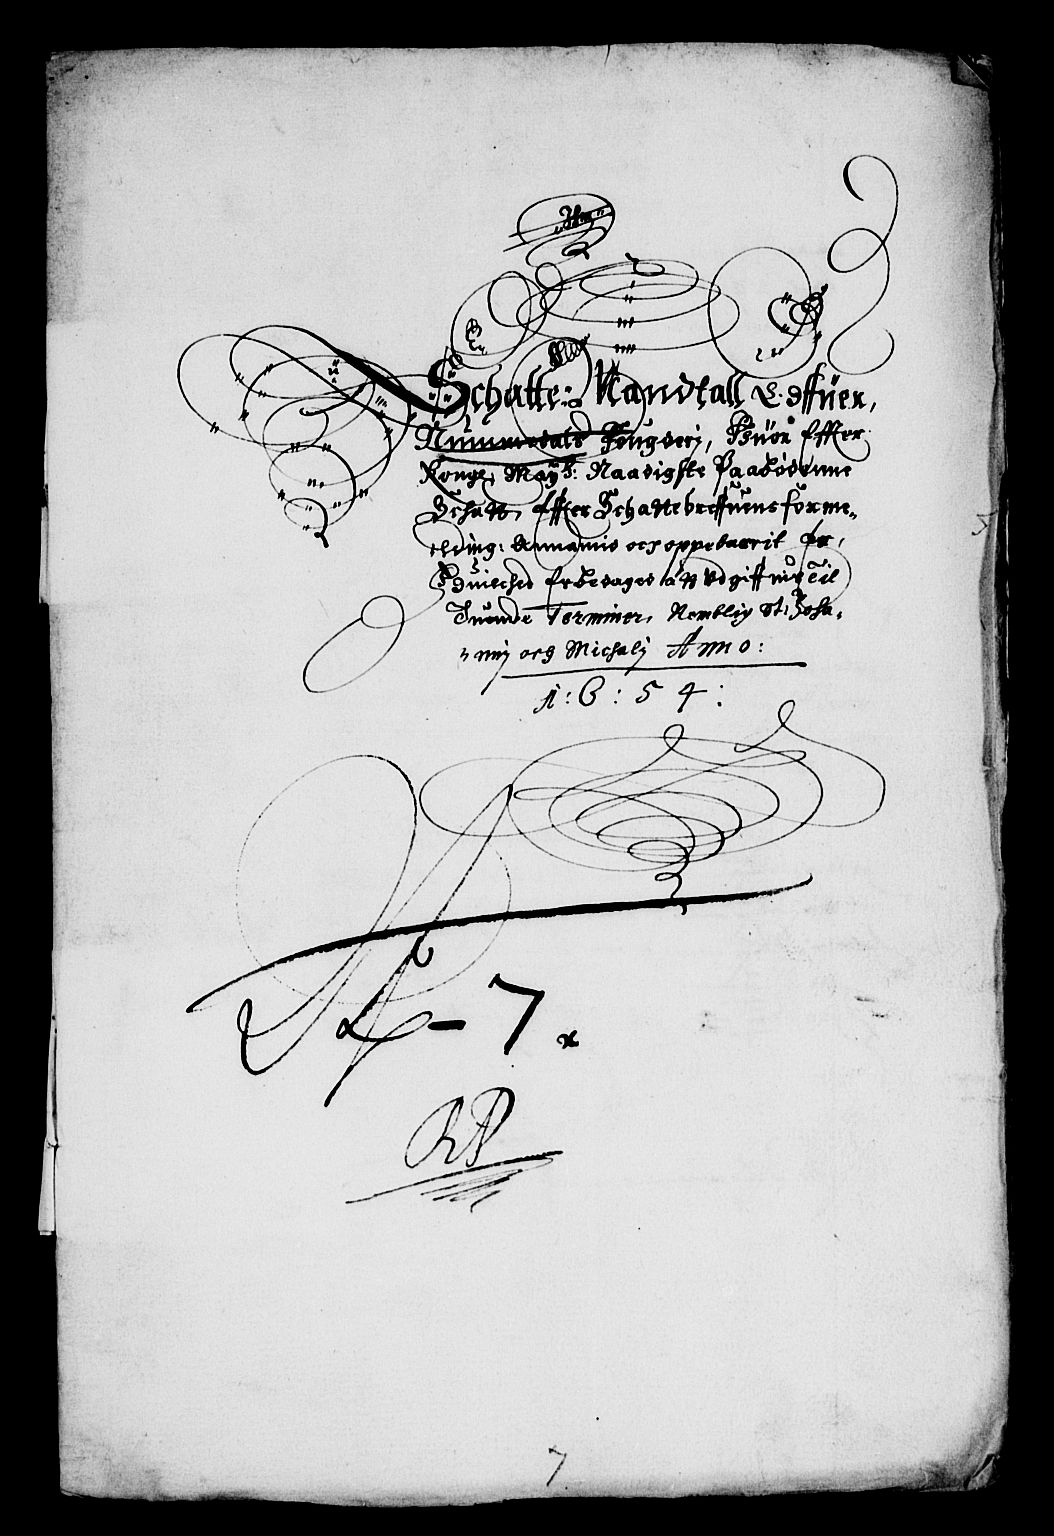 Schatte: Mandtall Offuer,
Nummedals Fougderj, Huor Effter
Konge, May: Naadigste Paabødenne
Schatt, Effter Schattebreffuens forme-
elding: Annamis och oppebærrit er,
Huilched erbedaged att Udgiffuis Til
Tuende Terminer, Nemblig St: Joha-
nnij och Michalj Anno:
1:6:54:
- 7.
RP
7